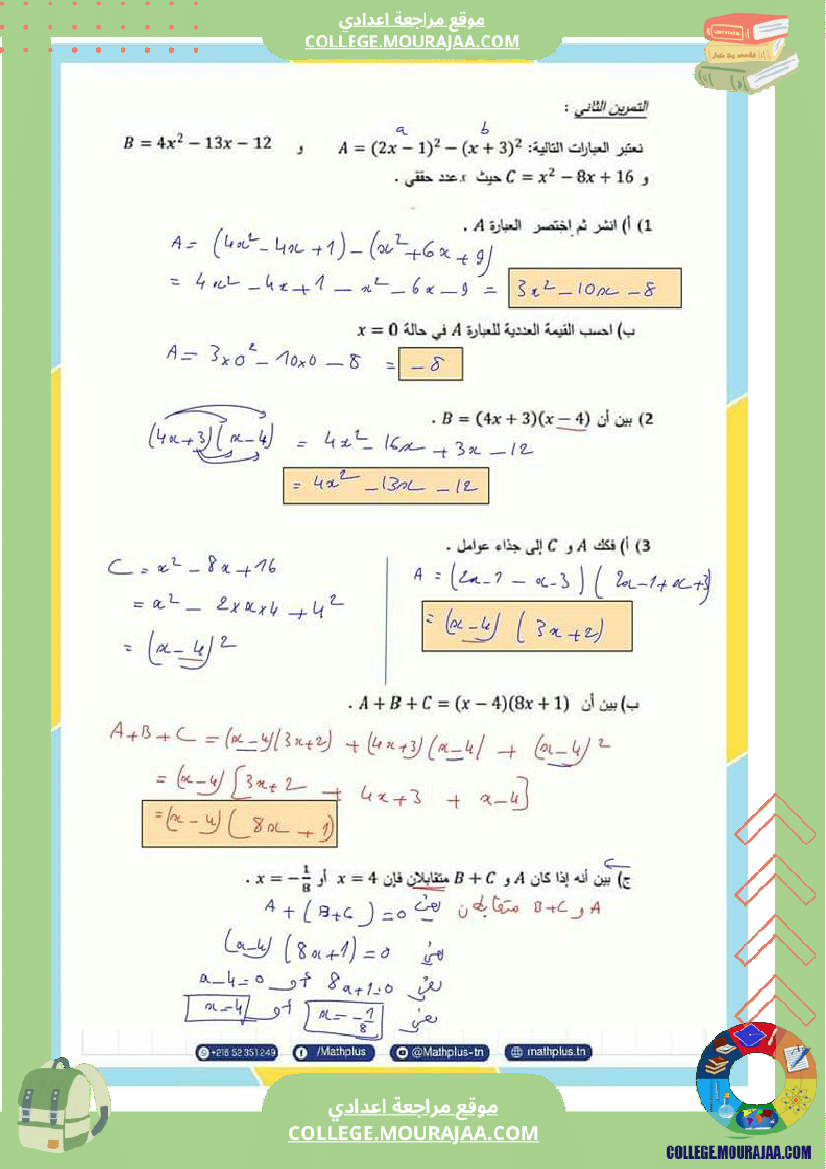 موقع مراجعة اعدادي
COLLEGE.MOURAJAA.COM
التمرين الثاني :
a b
نعتبر العبارات التالية: A = (2x − 1)² − (x + 3)² و B = 4x² − 13x − 12
و C = x² − 8x + 16 حيث x عدد حقيقي .
1) أ) انشر ثم اختصر العبارة A .
A = (4x² − 4x + 1) − (x² + 6x + 9)
= 4x² − 4x + 1 − x² − 6x − 9 = 3x² − 10x − 8
ب) احسب القيمة العددية للعبارة A في حالة x = 0
A = 3×0² − 10×0 − 8 = −8
2) بين أن B = (4x + 3)(x − 4) .
(4x+3)(x−4) = 4x² − 16x + 3x − 12
= 4x² − 13x − 12
3) أ) فكك A و C إلى جذاء عوامل .
A = (2x−1 − x−3)(2x−1+x+3)
= (x−4)(3x+2)
C = x² − 8x + 16
= x² − 2×x×4 + 4²
= (x − 4)²
ب) بين أن A + B + C = (x − 4)(8x + 1) .
A+B+C = (x−4)(3x+2) + (4x+3)(x−4) + (x−4)²
= (x−4)[3x+2 + 4x+3 + x−4]
= (x − 4)(8x + 1)
ج) بين أنه إذا كان A و B + C متقابلان فإن x = 4 أو x = −1/8 .
A و B+C متقابلان يعني A + (B+C) = 0
يعني (x−4)(8x+1) = 0
يعني 8x+1=0 أو x−4=0
يعني x = −1/8 أو x=4
+216 52 351 249 /Mathplus @Mathplus-tn mathplus.tn
موقع مراجعة اعدادي
COLLEGE.MOURAJAA.COM
COLLEGE.MOURAJAA.COM